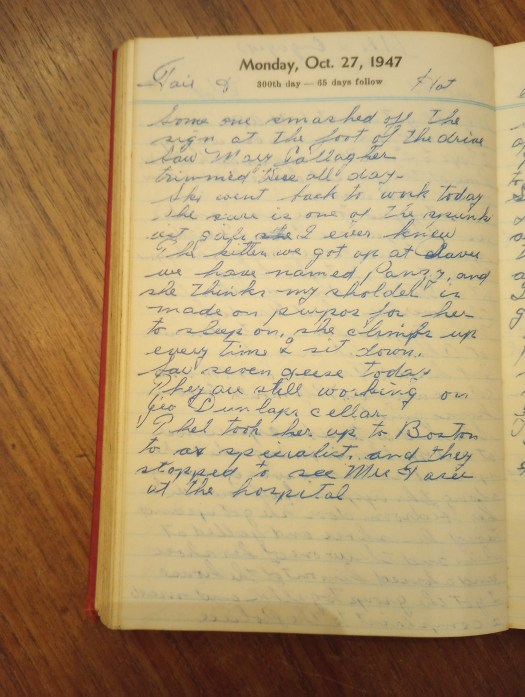 Monday, Oct. 27, 1947
300th day — 65 days follow
Fair & Hot
Some one smashed off the
sign at the foot of the drive
Saw Mary Gallagher
trimmed all day.
she went back to work today
she sure is one of the spunk
est I ever knew
The kitten we got up at
we have named Panzy, and
she thinks my sholder is
made on purpos for her
to sleep on, she climbs up
every time I sit down.
Saw seven geese today
They are still working on
Geo Dunlaps cellar
Thel took her up to Boston
to a specialist, and they
stopped to see Mrs
at the hospital